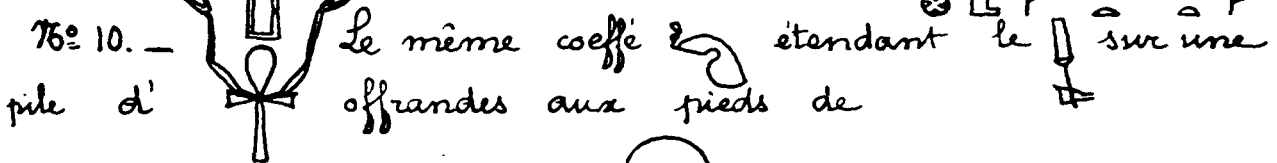 Nº 10. _ Le même coeffé étendant le sur une
pile d' offrandes aux pieds de